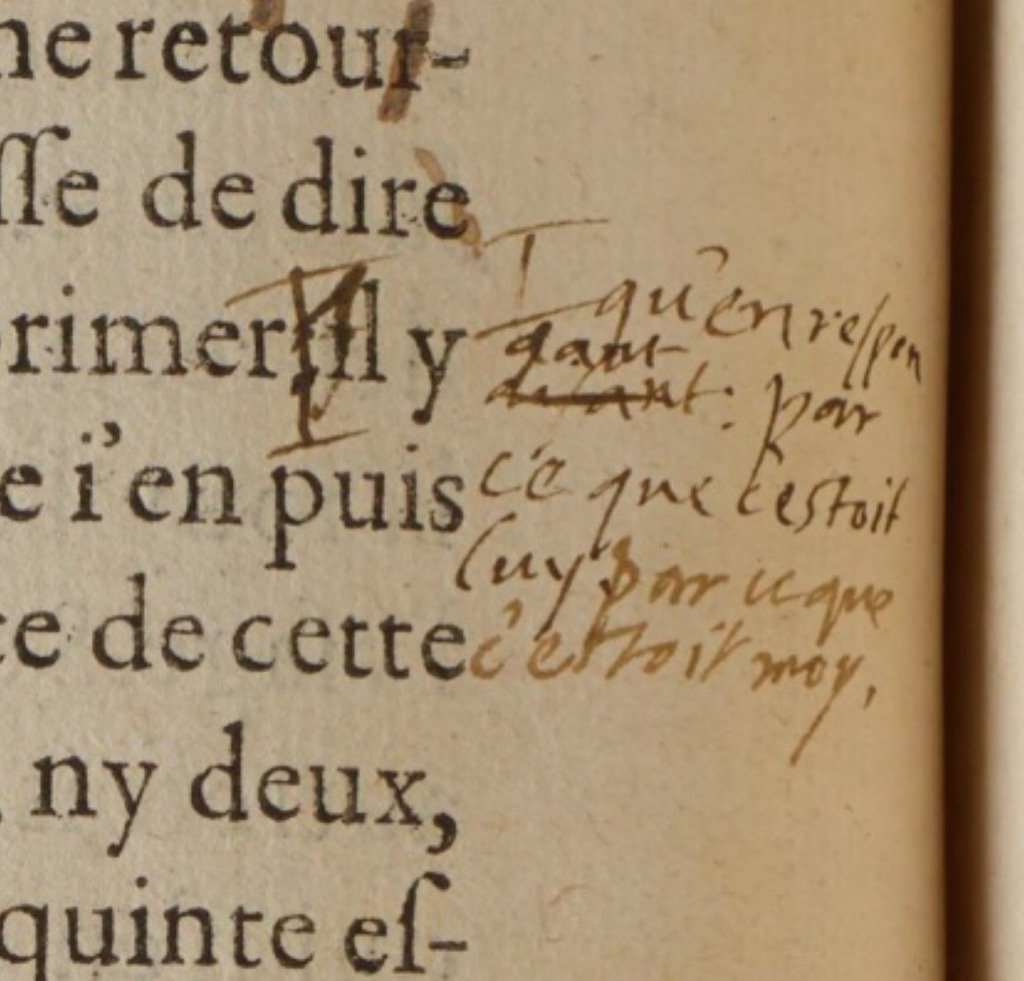 ne retour-
ſſe de dire
rimer il y
e i'en puis
ce de cette
ny deux,
quinte eſ-
qu'en respon
dant
disant: par
ce que c'estoit
luy par ce que
c'estoit moy.